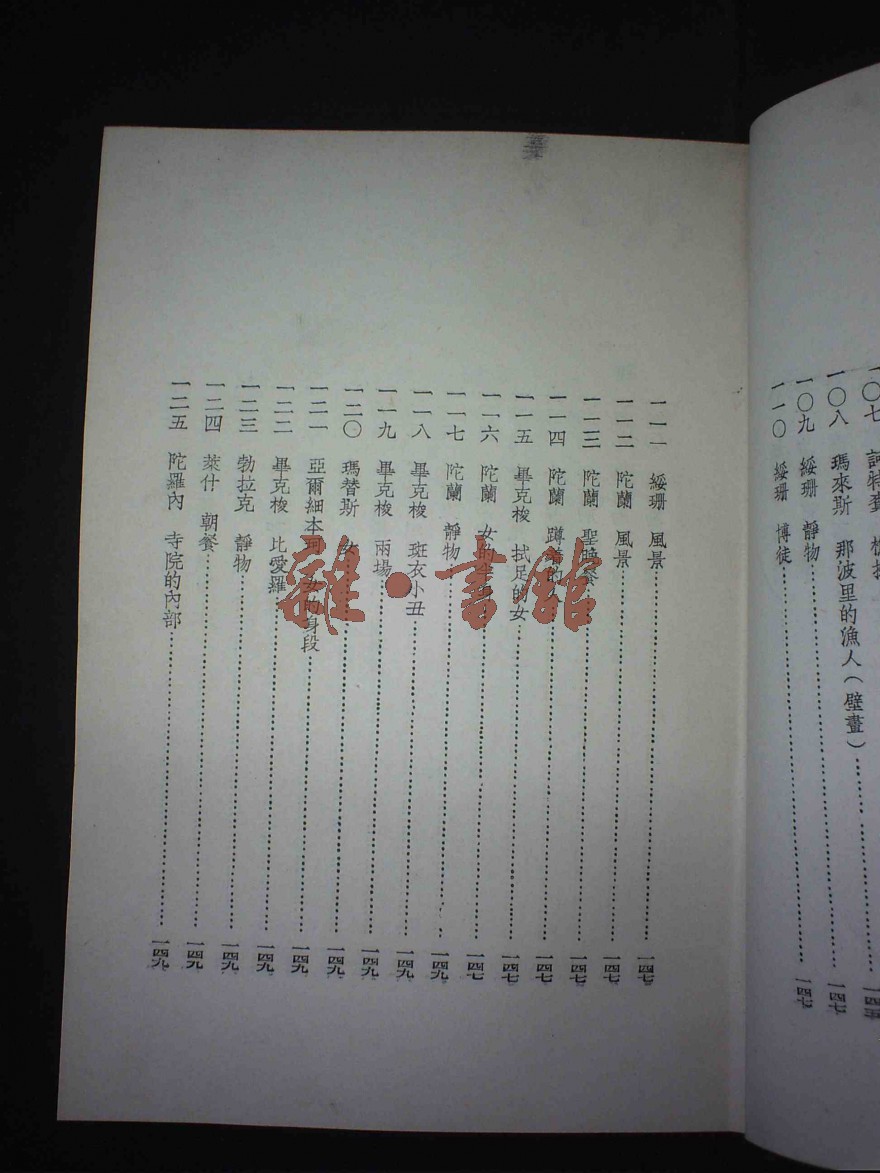 一〇七
一〇八 瑪來斯 那波里的漁人（壁畫）……一四七
一〇九 綏珊 靜物……一四七
一一〇 綏珊 博徒……一四七
一一一 綏珊 風景……一四七
一一二 陀蘭 風景……一四七
一一三 陀蘭 聖晚餐……一四七
一一四 陀蘭 蹲着的女……一四七
一一五 畢克梭 拭足的女……一四七
一一六 陀蘭 女的……一四七
一一七 陀蘭 靜物……一四九
一一八 畢克梭 斑衣小丑……一四九
一一九 畢克梭 兩場……一四九
一二〇 瑪替斯 女……一四九
一二一 亞爾細本珂 女的身段……一四九
一二二 畢克梭 比愛羅……一四九
一二三 勃拉克 靜物……一四九
一二四 萊什 朝餐……一四九
一二五 陀羅內 寺院的內部……一四九
雜·書館